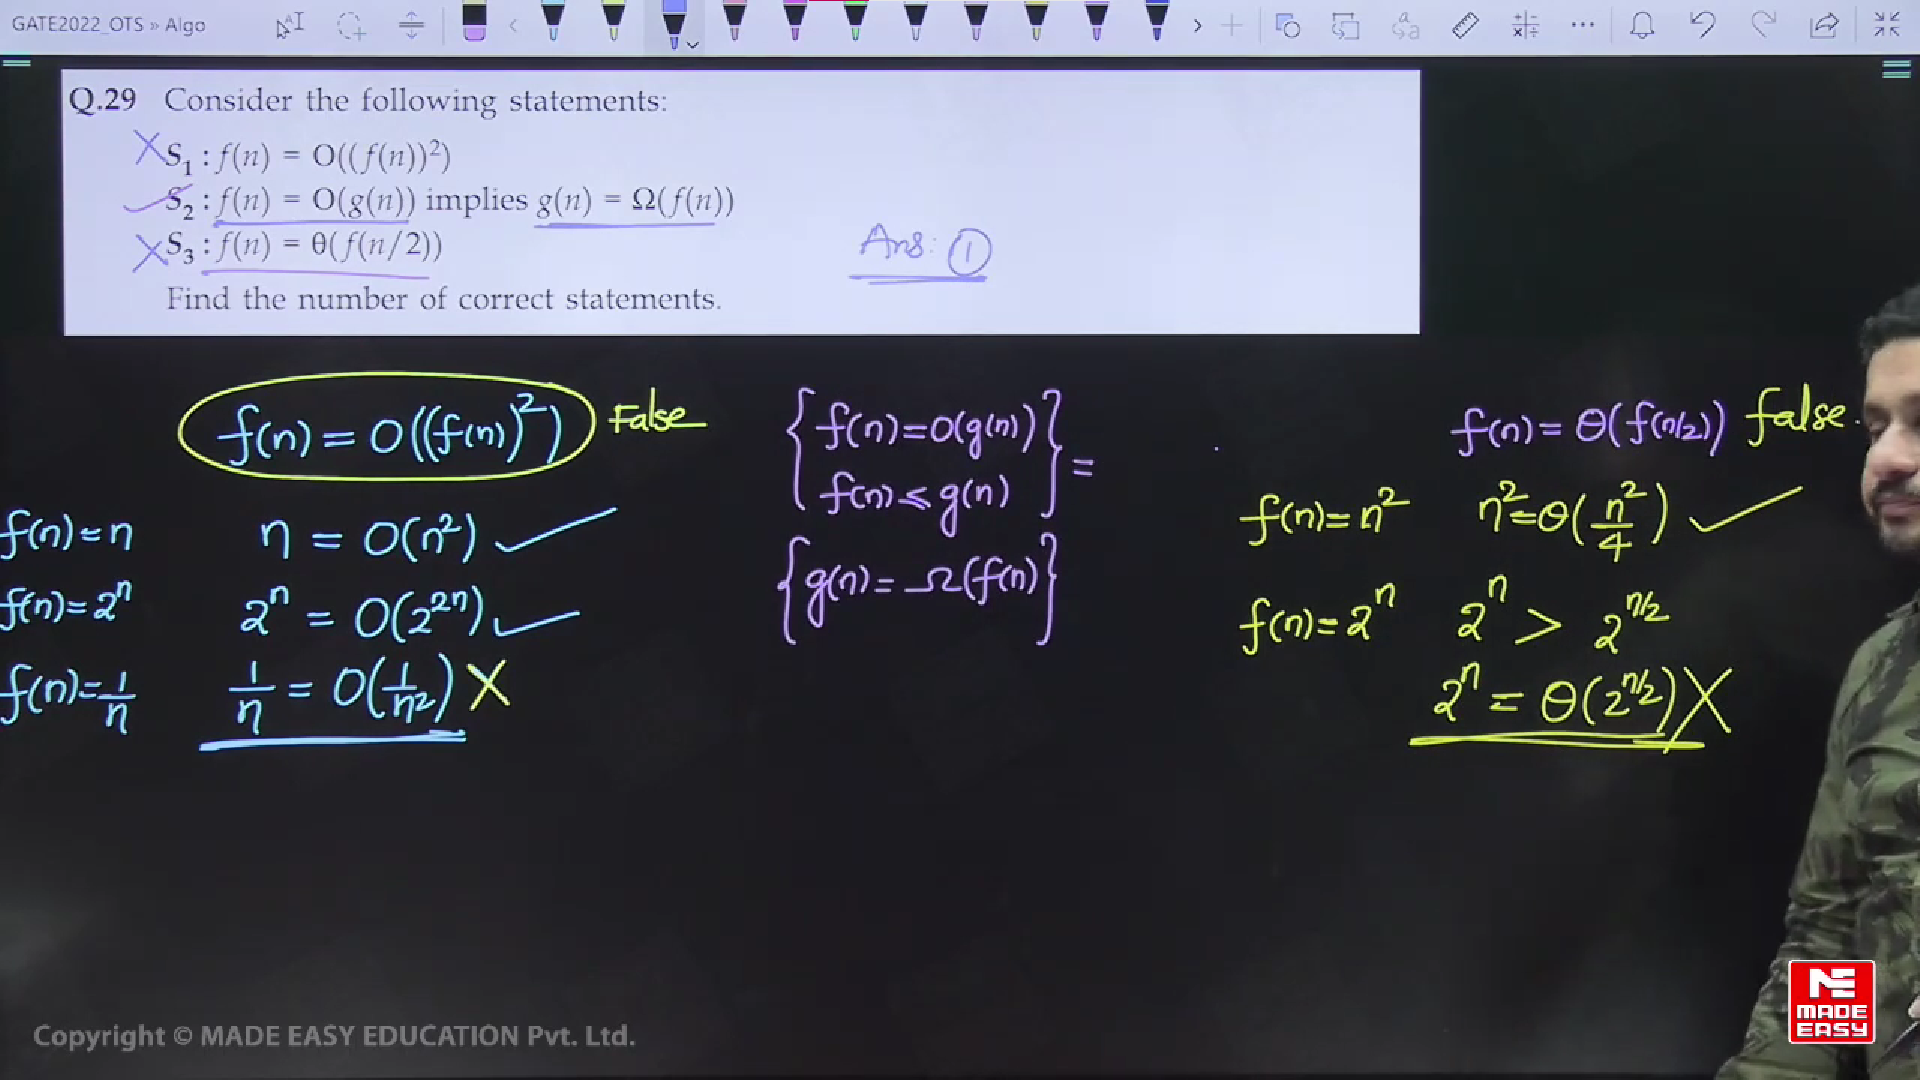 GATE2022_OTS » Algo
Q.29 Consider the following statements:
✗ S₁ : f(n) = O((f(n))²)
✓ S₂ : f(n) = O(g(n)) implies g(n) = Ω(f(n))
✗ S₃ : f(n) = θ(f(n/2))
Ans: ①
Find the number of correct statements.
f(n) = O((f(n))²) False
f(n) = n n = O(n²) ✓
f(n) = 2ⁿ 2ⁿ = O(2²ⁿ) ✓
f(n) = 1/n 1/n = O(1/n²) ✗
{ f(n) = O(g(n))
f(n) ≤ g(n) } =
{ g(n) = Ω(f(n) }
f(n) = θ(f(n/2)) false.
f(n) = n² n² = θ(n²/4) ✓
f(n) = 2ⁿ 2ⁿ > 2^(n/2)
2ⁿ = θ(2^(n/2)) ✗
Copyright © MADE EASY EDUCATION Pvt. Ltd.
MADE
EASY